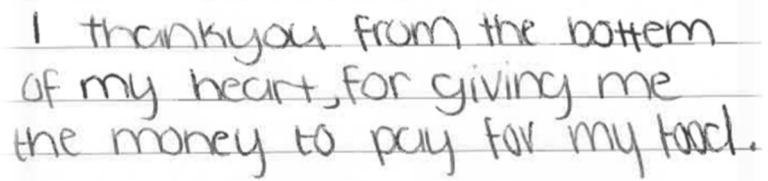 I thankyou from the bottem
of my heart, for giving me
the money to pay for my food.